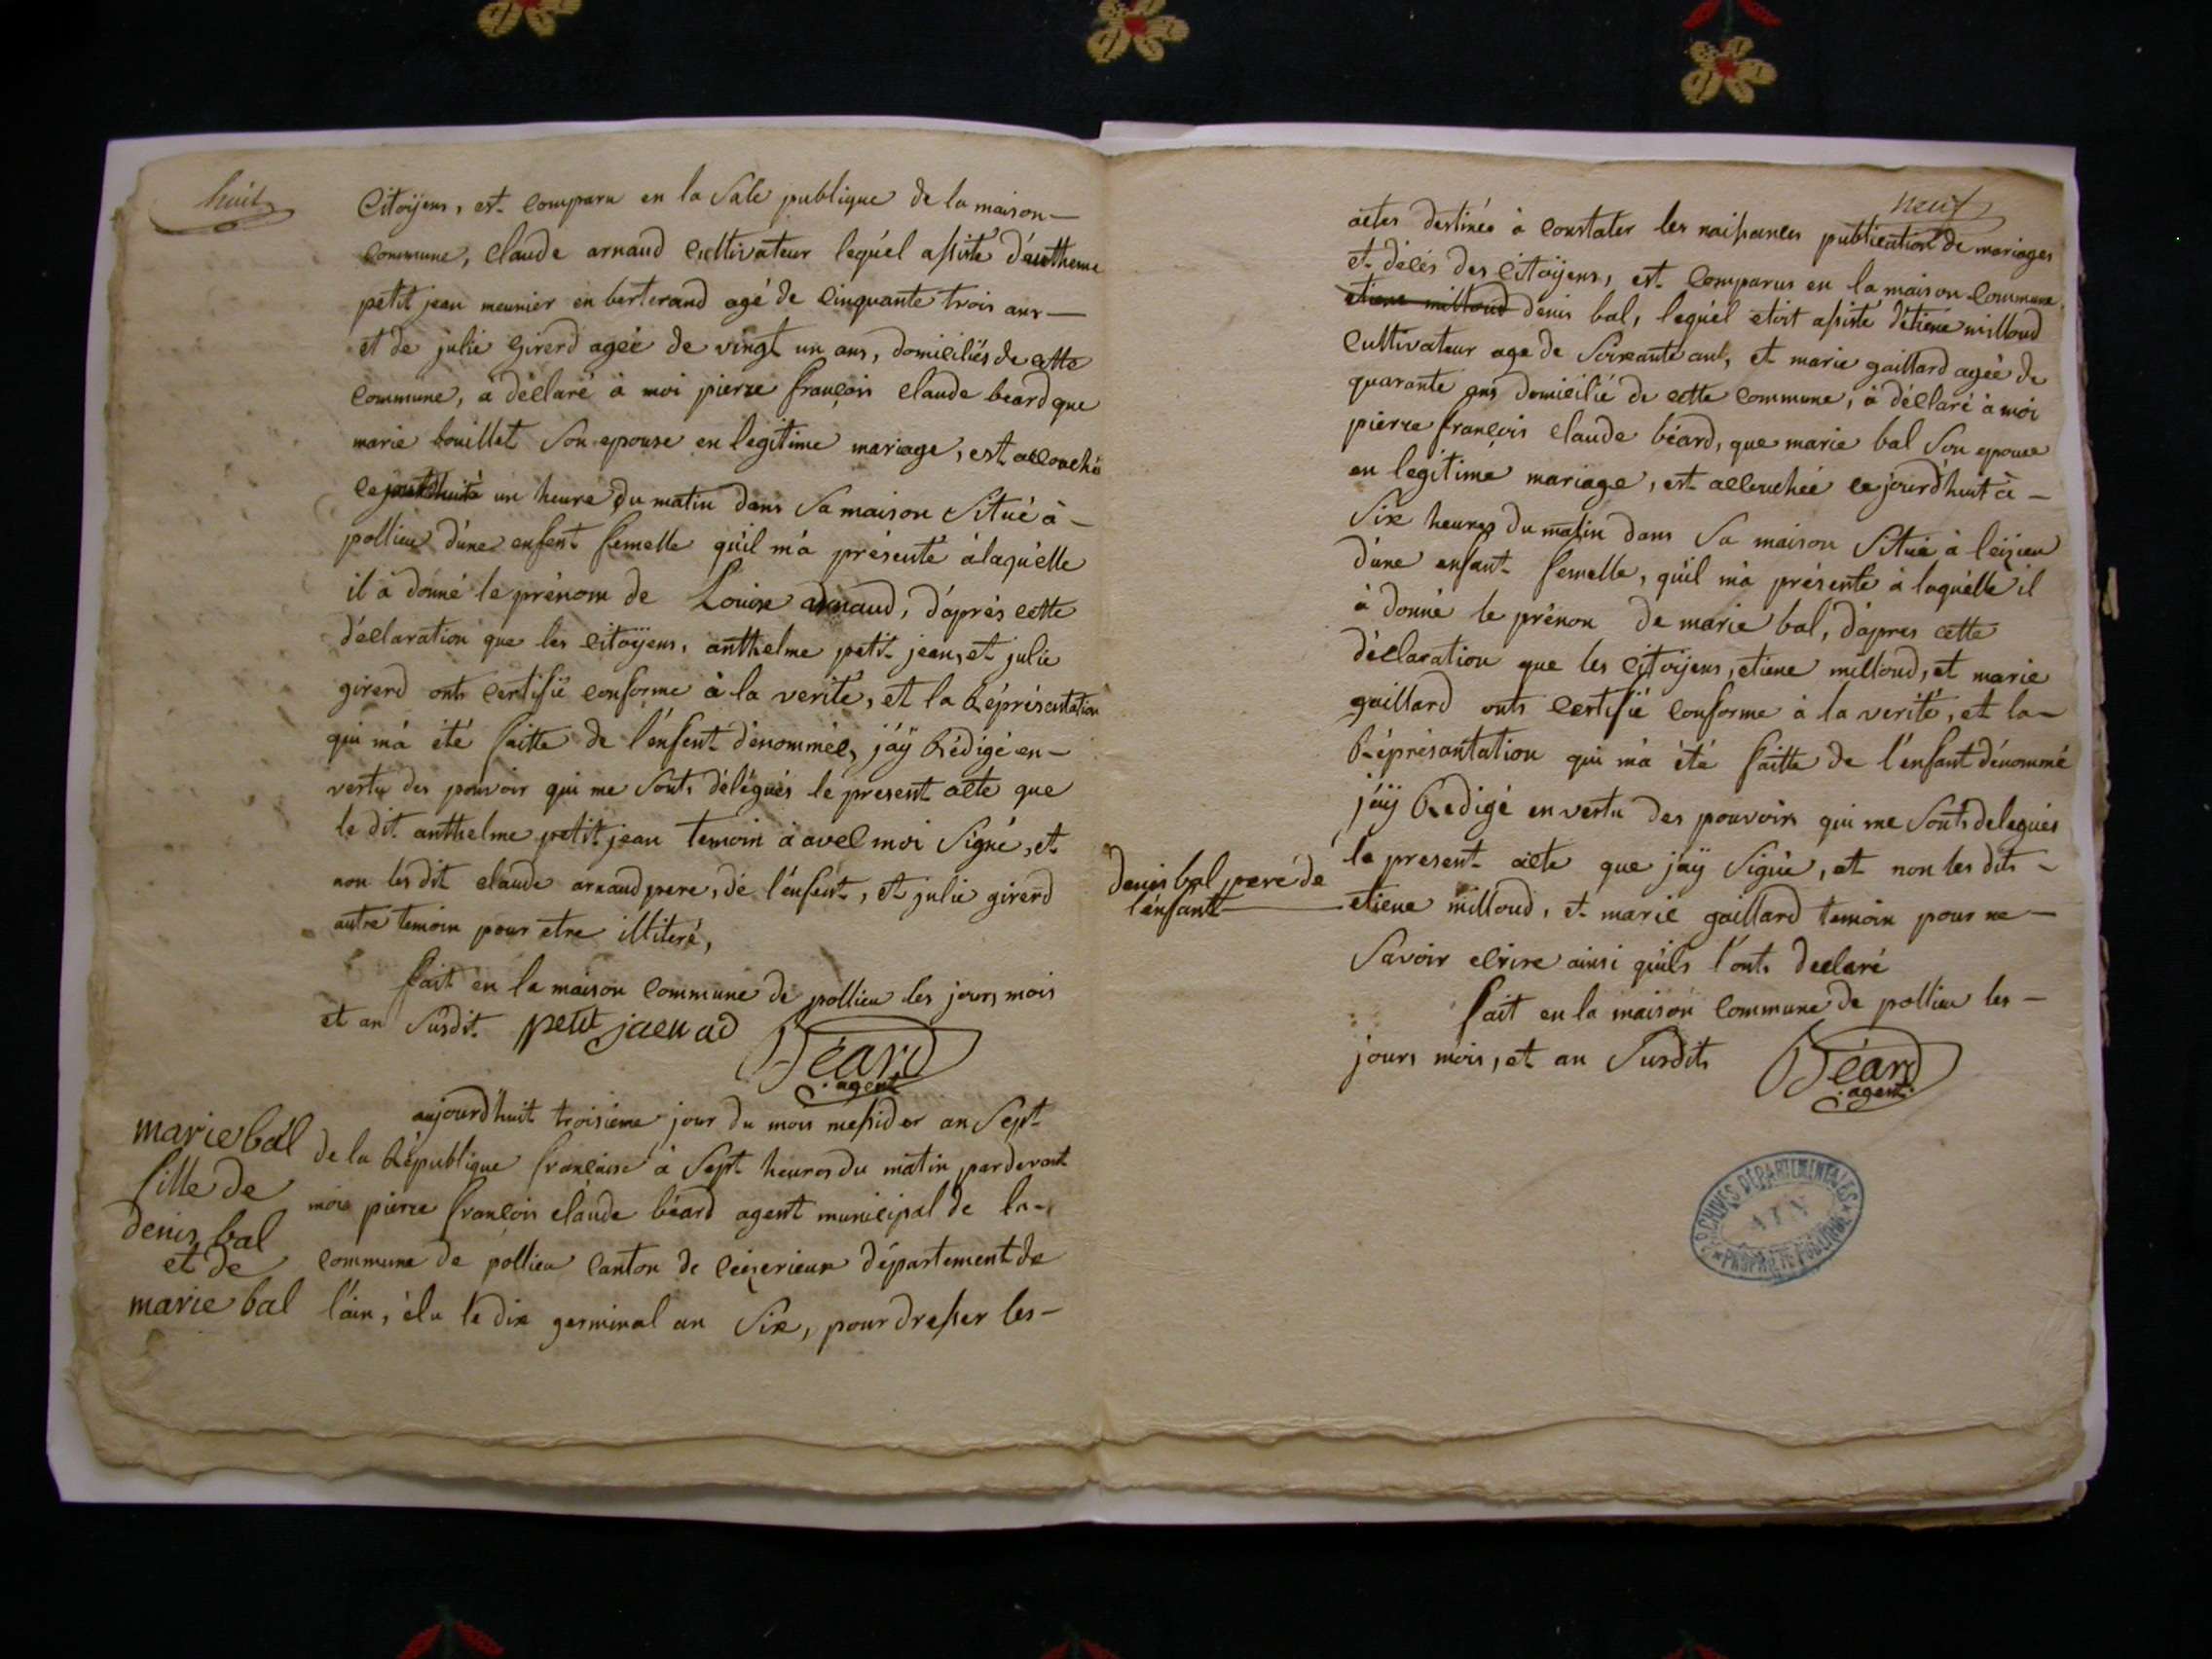 huit
Citoÿens, est comparu en la Sale publique de la maison-
commune, claude arnaud cultivateur lequel assiste d'antheme
petit jean meunier en berterand agé de cinquante trois ans-
et de julie girerd ageé de vingt un ans, domiciliés de cette
commune, à déclaré à moi pierre françois claude beard que
marie bouillet Son epouse en legitime mariage, est accouché
ce jourd'huit à un heure du matin dans Sa maison Situé à-
pollieu d'une enfent femelle qu'il m'à présenté à laqu'elle
il à donné le prénom de Louise arnaud, d'aprés cette
déclaration que les citoÿens, anthelme petit jean, et julie
girerd onts certifié conforme à la verité, et la Réprésentation
qui m'à été faitte de l'enfent dénommée, j'aÿ Rédigé en-
vertu des pouvoir qui me Sonts délégués le present acte que
le dit anthelme petit jean temoin à avec moi Signé, et
non les dit claude arnaud pere, de l'enfent, et julie girerd
autre temoin pour etre illiteré,
fait en la maison commune de pollieu les jours mois
et an Susdit. petit jaen ad Béard
agent
aujourd'huit troisieme jour du mois messidor an Sept
de la République française à Sept heures du matin pardevant
moi pierre françois claude béard agent municipal de la-
commune de pollieu canton de ceizerieux département de
l'ain, élu le dix germinal an Six, pour dresser les-
marie bal
fille de
denis bal
et de
marie bal
neuf
actes destinés à constater les naissances publication de mariages
et décés des citoÿens, est comparus en la maison commune
etiene milloud denis bal, lequel etoit assisté d'etiene milloud
cultivateur age de Soixante ans, et marie gaillard ageé de
quarante ans domicilié de cette commune, à déclaré à moi
pierre françois claude béard, que marie bal Son epouse
en legitime mariage, est accouchée ce jourd'huit à-
Six heures du matin dans Sa maison Situé à leizieu
d'une enfant femelle, qu'il m'à présenté à laquelle il
à donné le prénon de marie bal, d'apres cette
déclaration que les Citoÿens, etiene milloud, et marie
gaillard onts certifié conforme à la verité, et la-
Réprésantation qui m'à été faitte de l'enfant dénommé
j'aÿ Redigé en vertu des pouvoirs qui me Sonts delegués
le present acte que jaÿ Signé, et non les dits-
denis bal pere de
l'enfant
etiene milloud, et marie gaillard temoin pour ne-
Savoir ecrire ainsi qu'ils l'onts declaré
fait en la maison commune de pollieu les-
jours mois, et an Susdits Béard
agent
ARCHIVES DÉPARTEMENTALES
AIN
PROPRIÉTÉ PUBLIQUE